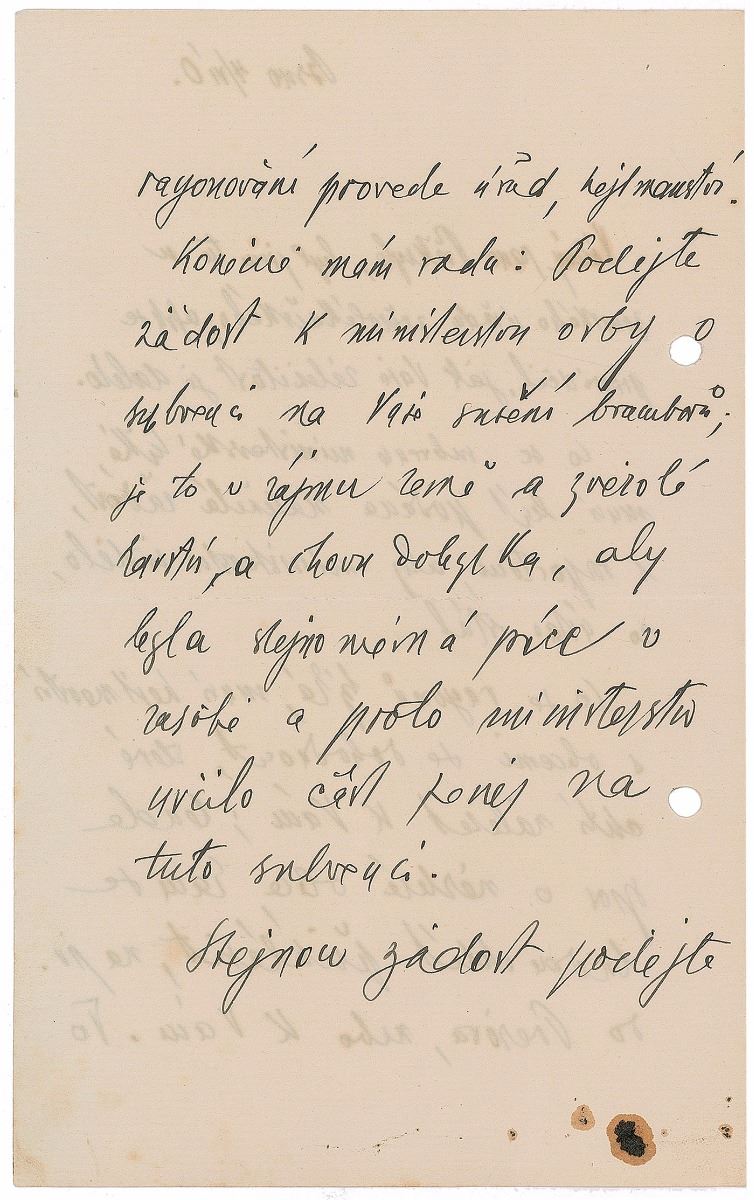 rayonování provede úřad, hejtmanství.
Konečně mám radu: Podejte
žádost k ministerstvu orby o
subvenci na Vaše sušení bramborů;
je to v zájmu země a zvěrolé
kařství, a chovu dobytka, aby
byla stejnoměrná píce v
zásobě a proto ministerstvo
určilo část peněz na
tuto subvenci.
Stejnou žádost podejte